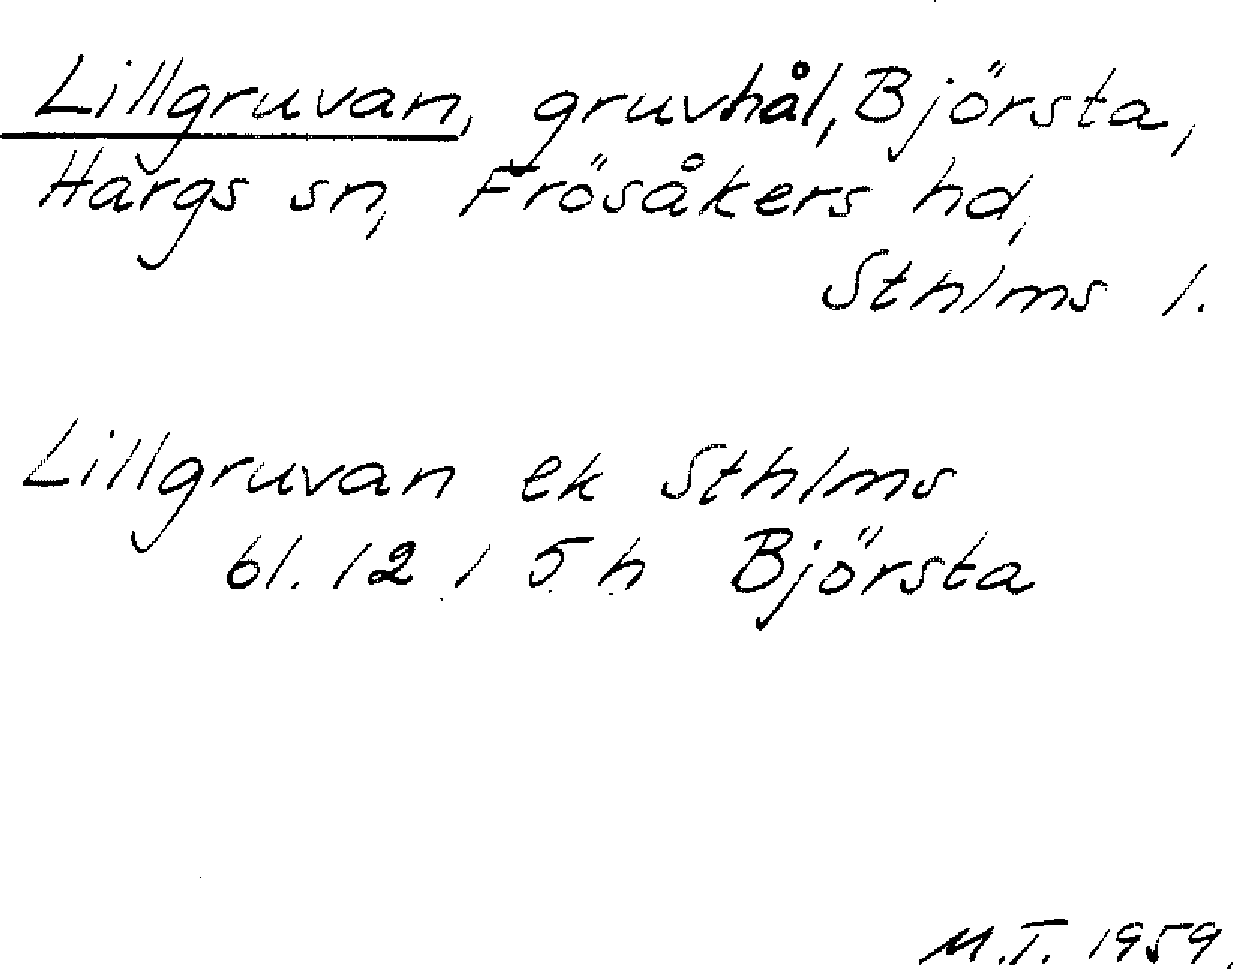 Lillgruvan, gruvhål, Björsta,
Hargs sn, Frösåkers hd,
Sthlms l.
Lillgruvan ek Sthlms
bl. 12 I 5 h Björsta
M.T. 1959.